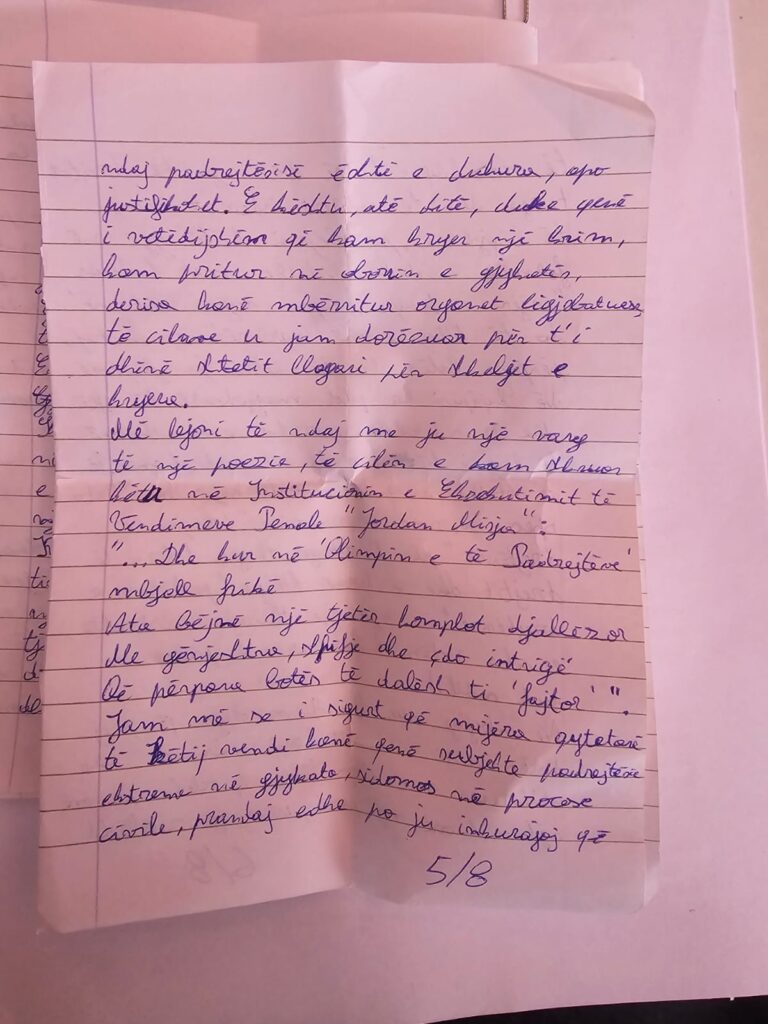 ndaj padrejtësisë është e dukura, apo
justifikohet. E kështu, atë ditë, duke qenë
i vetëdijshëm që kam kryer një krim,
kam pritur në oborrin e gjykatës,
derisa kanë mbërritur organet ligjzbatuese,
të cilave u jam dorëzuar për t'i
dhënë shtetit llogari për shkeljet e
kryera.
Më lejoni të ndaj me ju një varg
të një poezie, të cilën e kam shkruar
këtu në Institucionin e Ekzekutimit të
Vendimeve Penale "Jordan Misja":
"... Dhe kur në 'Olimpin e të Padrejtëve'
mbjell frikë
Ata bëjnë një tjetër komplot djallëzor
Me gënjeshtra, shpifje dhe çdo intrigë
Që përpara botës të dalësh ti 'fajtor' ".
Jam më se i sigurt që mijëra qytetarë
të këtij vendi kanë qenë subjekte padrejtësie
ekstreme në gjykata, sidomos në procese
civile, prandaj edhe po ju inkurajoj që
5/8